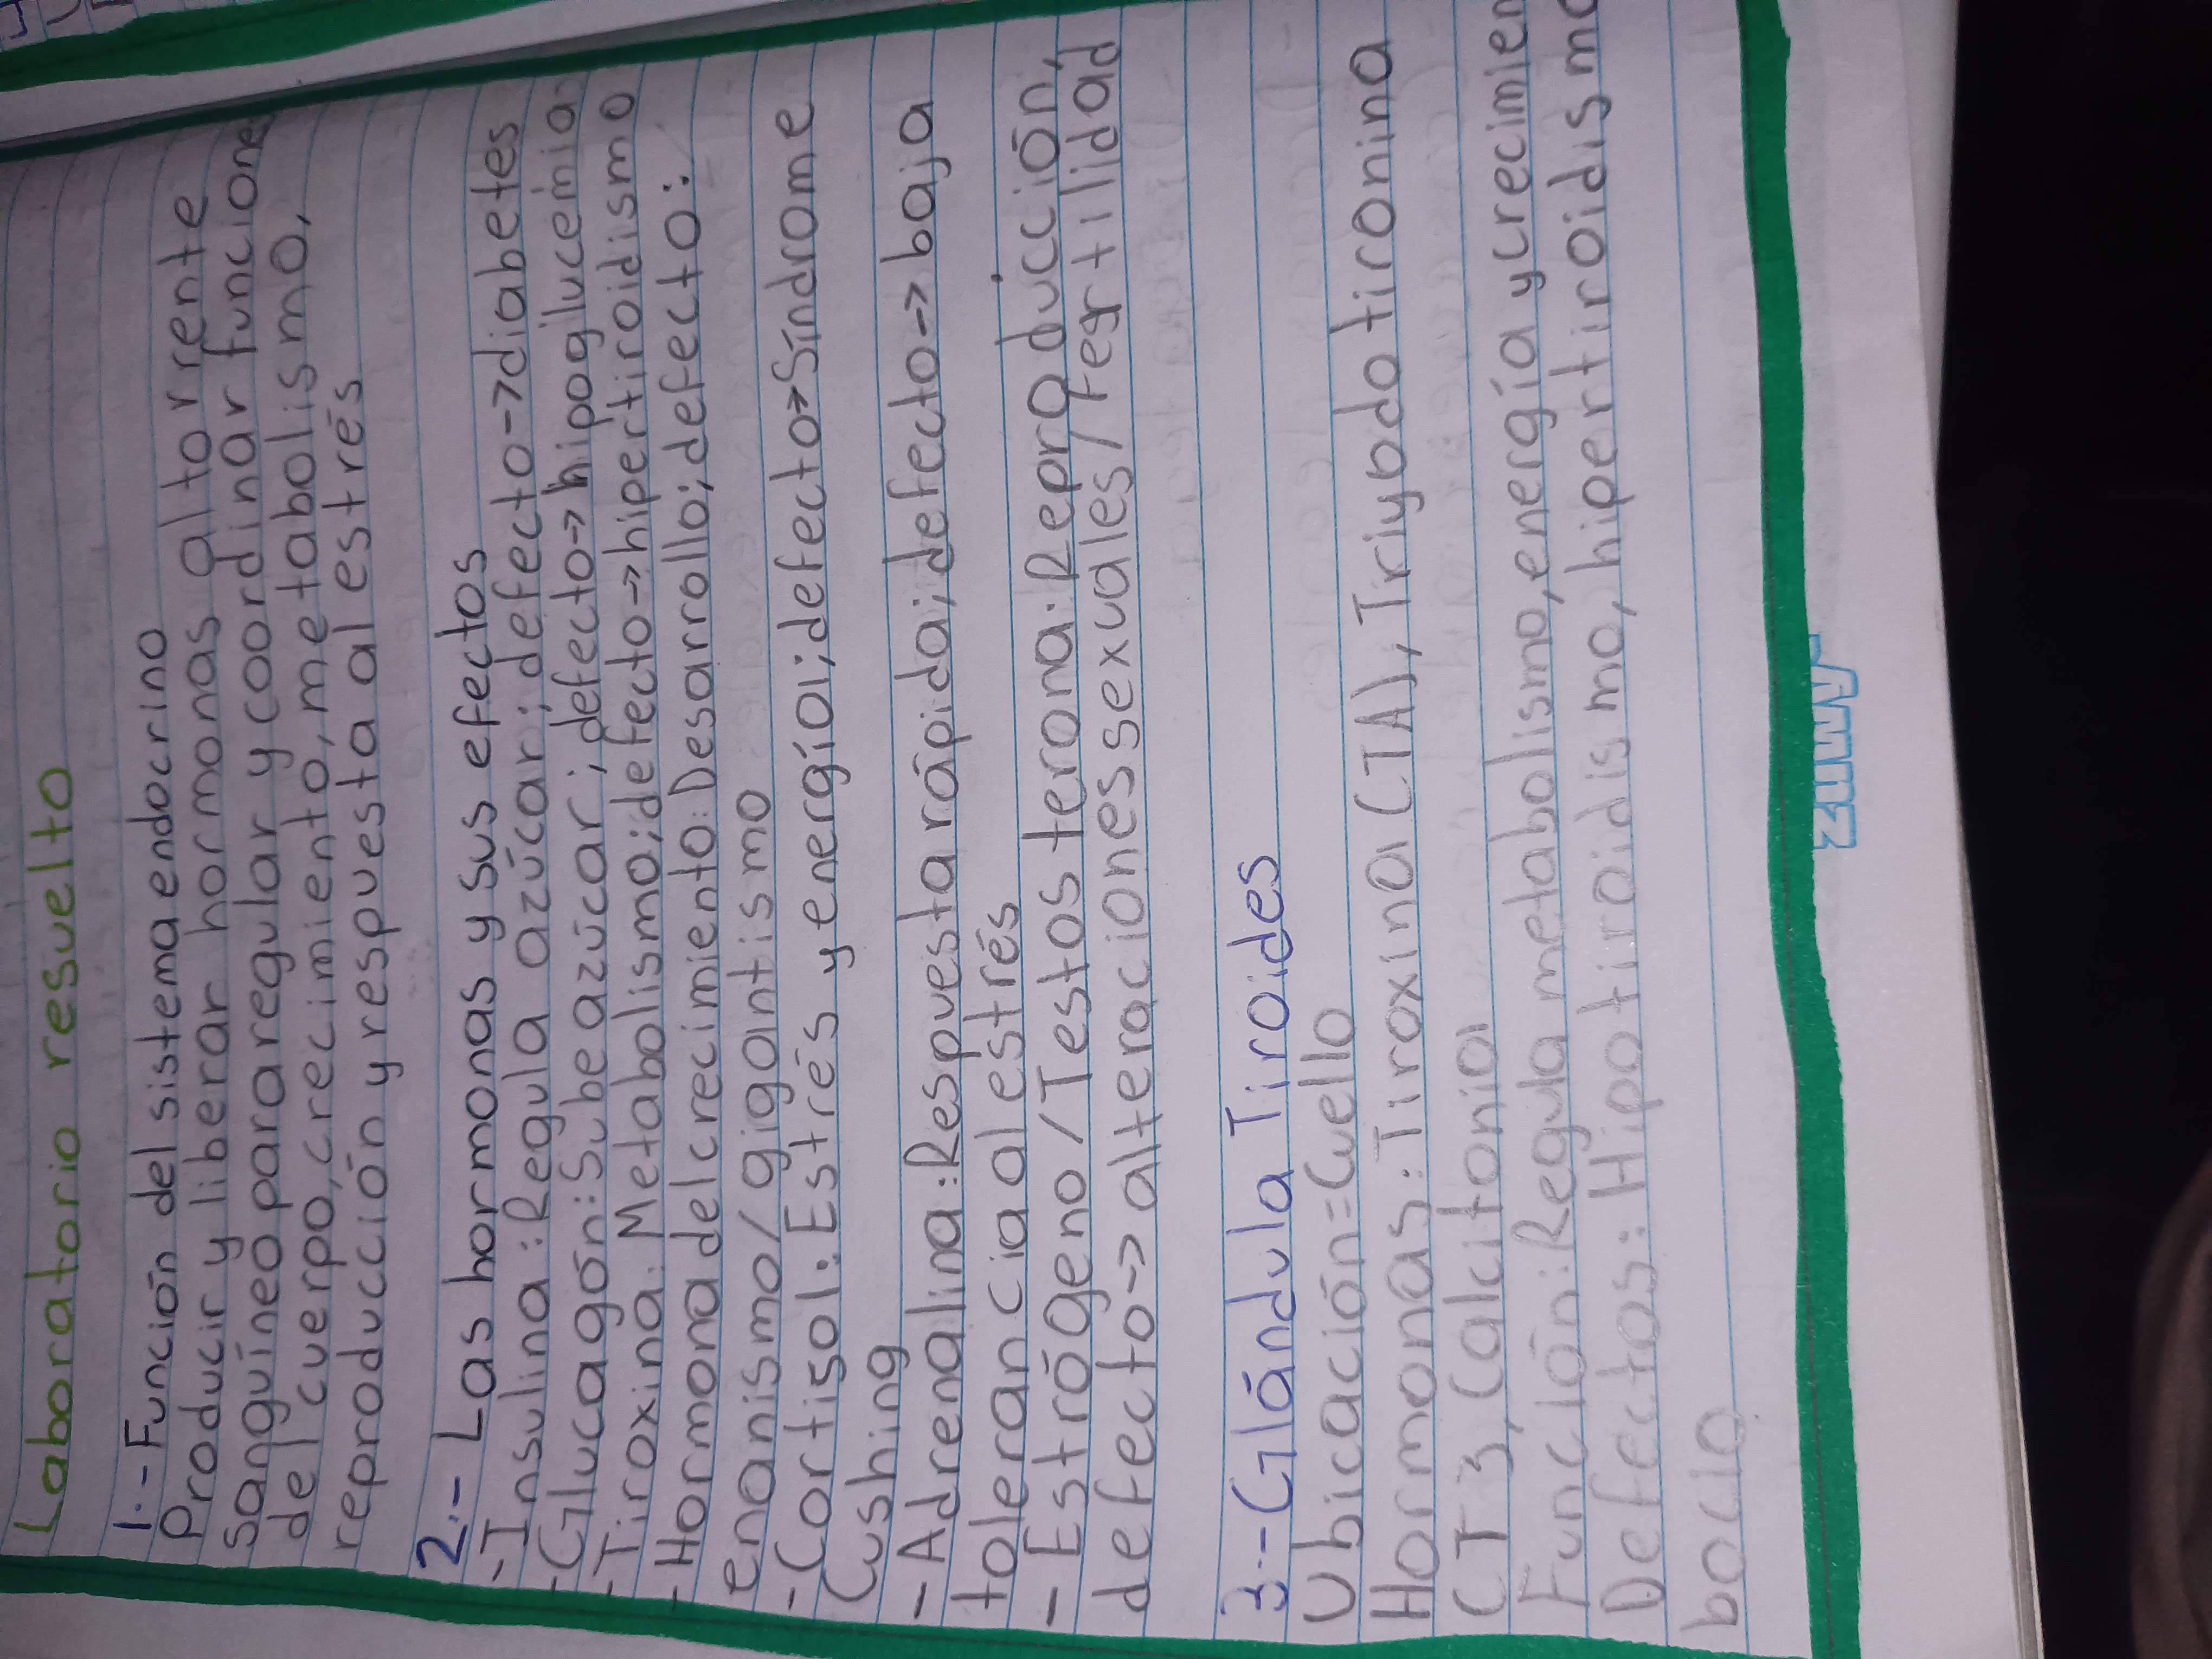 Laboratorio resuelto
1.- Función del sistema endocrino
Producir y liberar hormonas al torrente
sanguíneo para regular y coordinar funcione
del cuerpo, crecimiento, metabolismo,
reproducción y respuesta al estrés
2.- Las hormonas y sus efectos
- Insulina: Regula azúcar; defecto->diabetes
- Glucagón: Sube azúcar; defecto->hipoglucemia
- Tiroxina: Metabolismo; defecto->hipertiroidismo
- Hormona del crecimiento: Desarrollo; defecto:
enanismo/gigantismo
- Cortisol: Estrés y energía; defecto->Síndrome
Cushing
- Adrenalina: Respuesta rápida; defecto->baja
tolerancia al estrés
- Estrógeno/Testosterona: Reproducción,
defecto-> alteraciones sexuales/fertilidad
3.- Glándula Tiroides
Ubicación=Cuello
Hormonas: Tiroxina (TA), Triyodotironina
CT3, Calcitonia
Función: Regula metabolismo, energía y crecimien
Defectos: Hipotiroidismo, hipertiroidismo
bocio